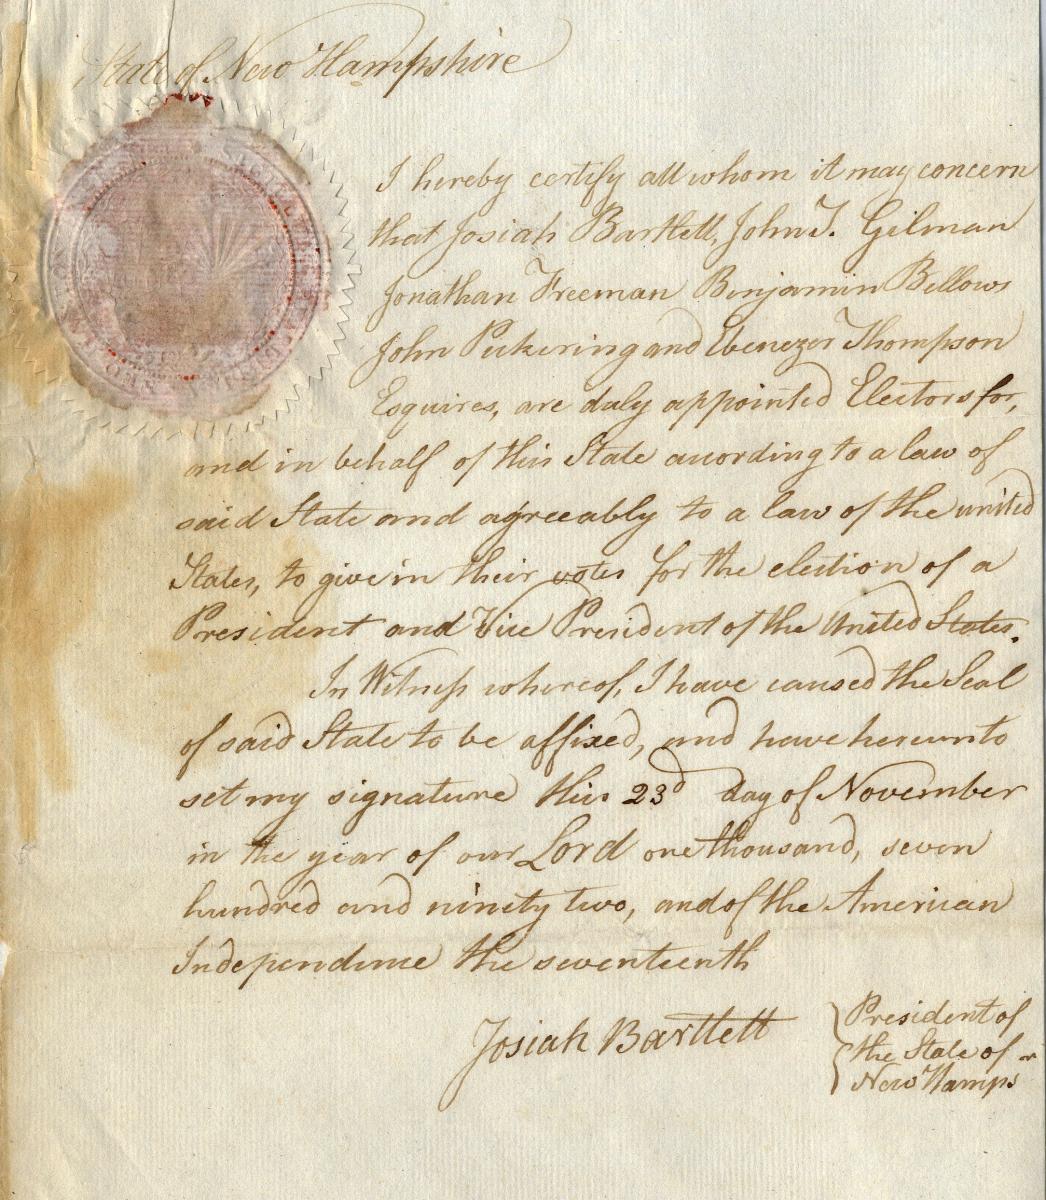 State of New Hampshire
I hereby certify all whom it may concern
that Josiah Bartlett, John T. Gilman
Jonathan Freeman Benjamin Bellows
John Pickering and Ebenezer Thompson
Esquires, are duly appointed Electors for,
and in behalf of this State acording to a law of
said State and agreeably to a law of the united
States, to give in their votes for the election of a
President and Vice President of the United States.
In Witness whereof, I have caused the Seal
of said State to be affixed, and have hereunto
set my signature this 23d day of November
in the year of our Lord one thousand, seven
hundred and ninety two, and of the American
Independence the seventeenth
Josiah Bartlett
President of
the State of
New Hampsr